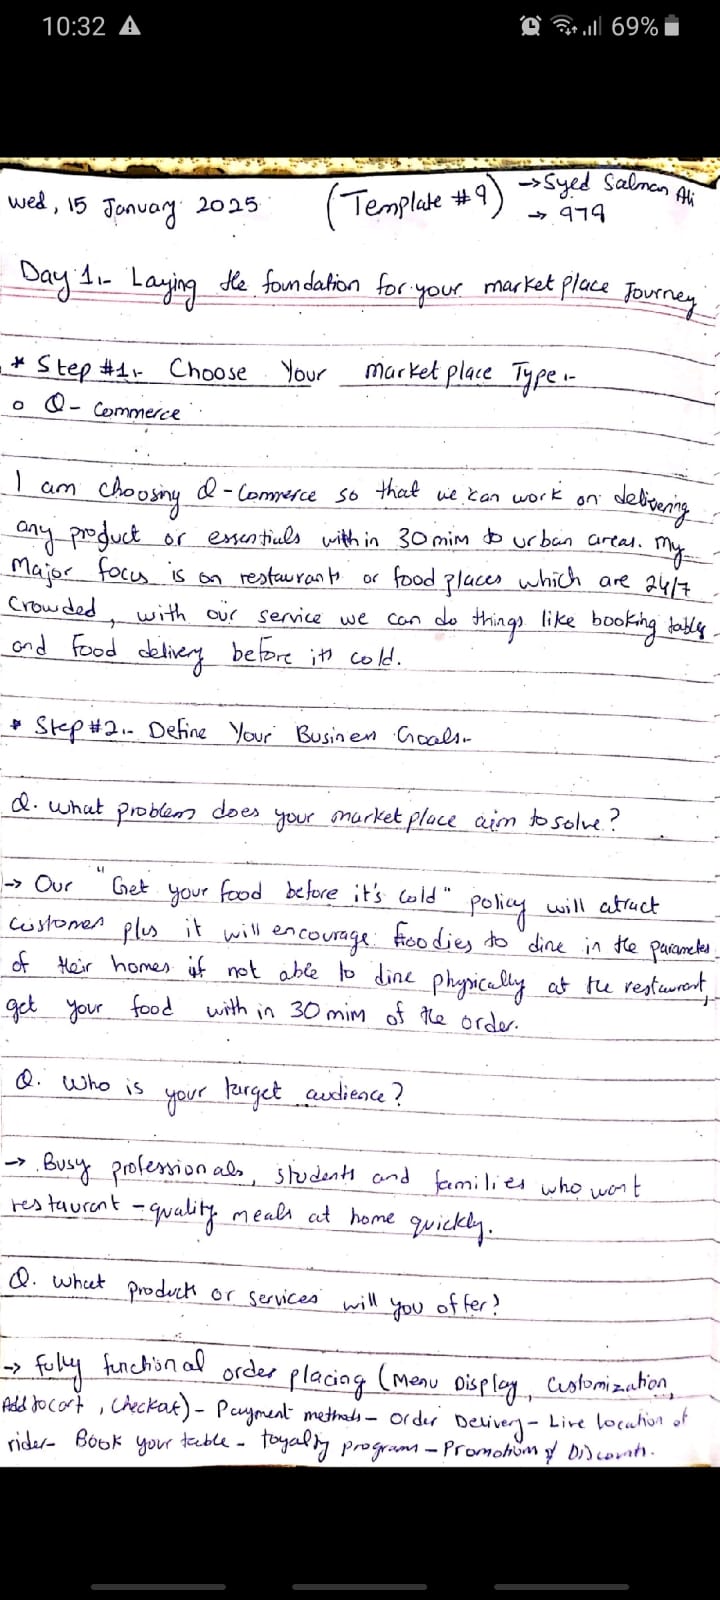 10:32
69%
Wed, 15 January 2025 (Template #9) → Syed Salman Ali
→ 979
Day 1:- Laying the foundation for your market place Journey
* Step #1:- Choose Your market place Type:-
o Q-Commerce
I am choosing Q-Commerce so that we can work on delivering
any product or essentials within 30 min to urban areas. My
Major focus is on restaurants or food places which are 24/7
Crowded, with our service we can do things like booking tables
and Food delivery before its cold.
* Step #2:- Define Your Business Goals:-
Q. What problem does your market place aim to solve?
→ Our "Get your food before it's cold" policy will attract
customers plus it will encourage foodies to dine in the parameter
of their homes if not able to dine physically at the restaurant,
get your food with in 30 min of the order.
Q. Who is your target audience?
→ Busy professionals, students and families who want
restaurant-quality meals at home quickly.
Q. What products or services will you offer?
→ Fully functional order placing (Menu Display, Customization,
Add to cart, Checkout) - Payment methods - Order Delivery - Live location of
rider - Book your table - loyalty program - Promotions & Discounts.